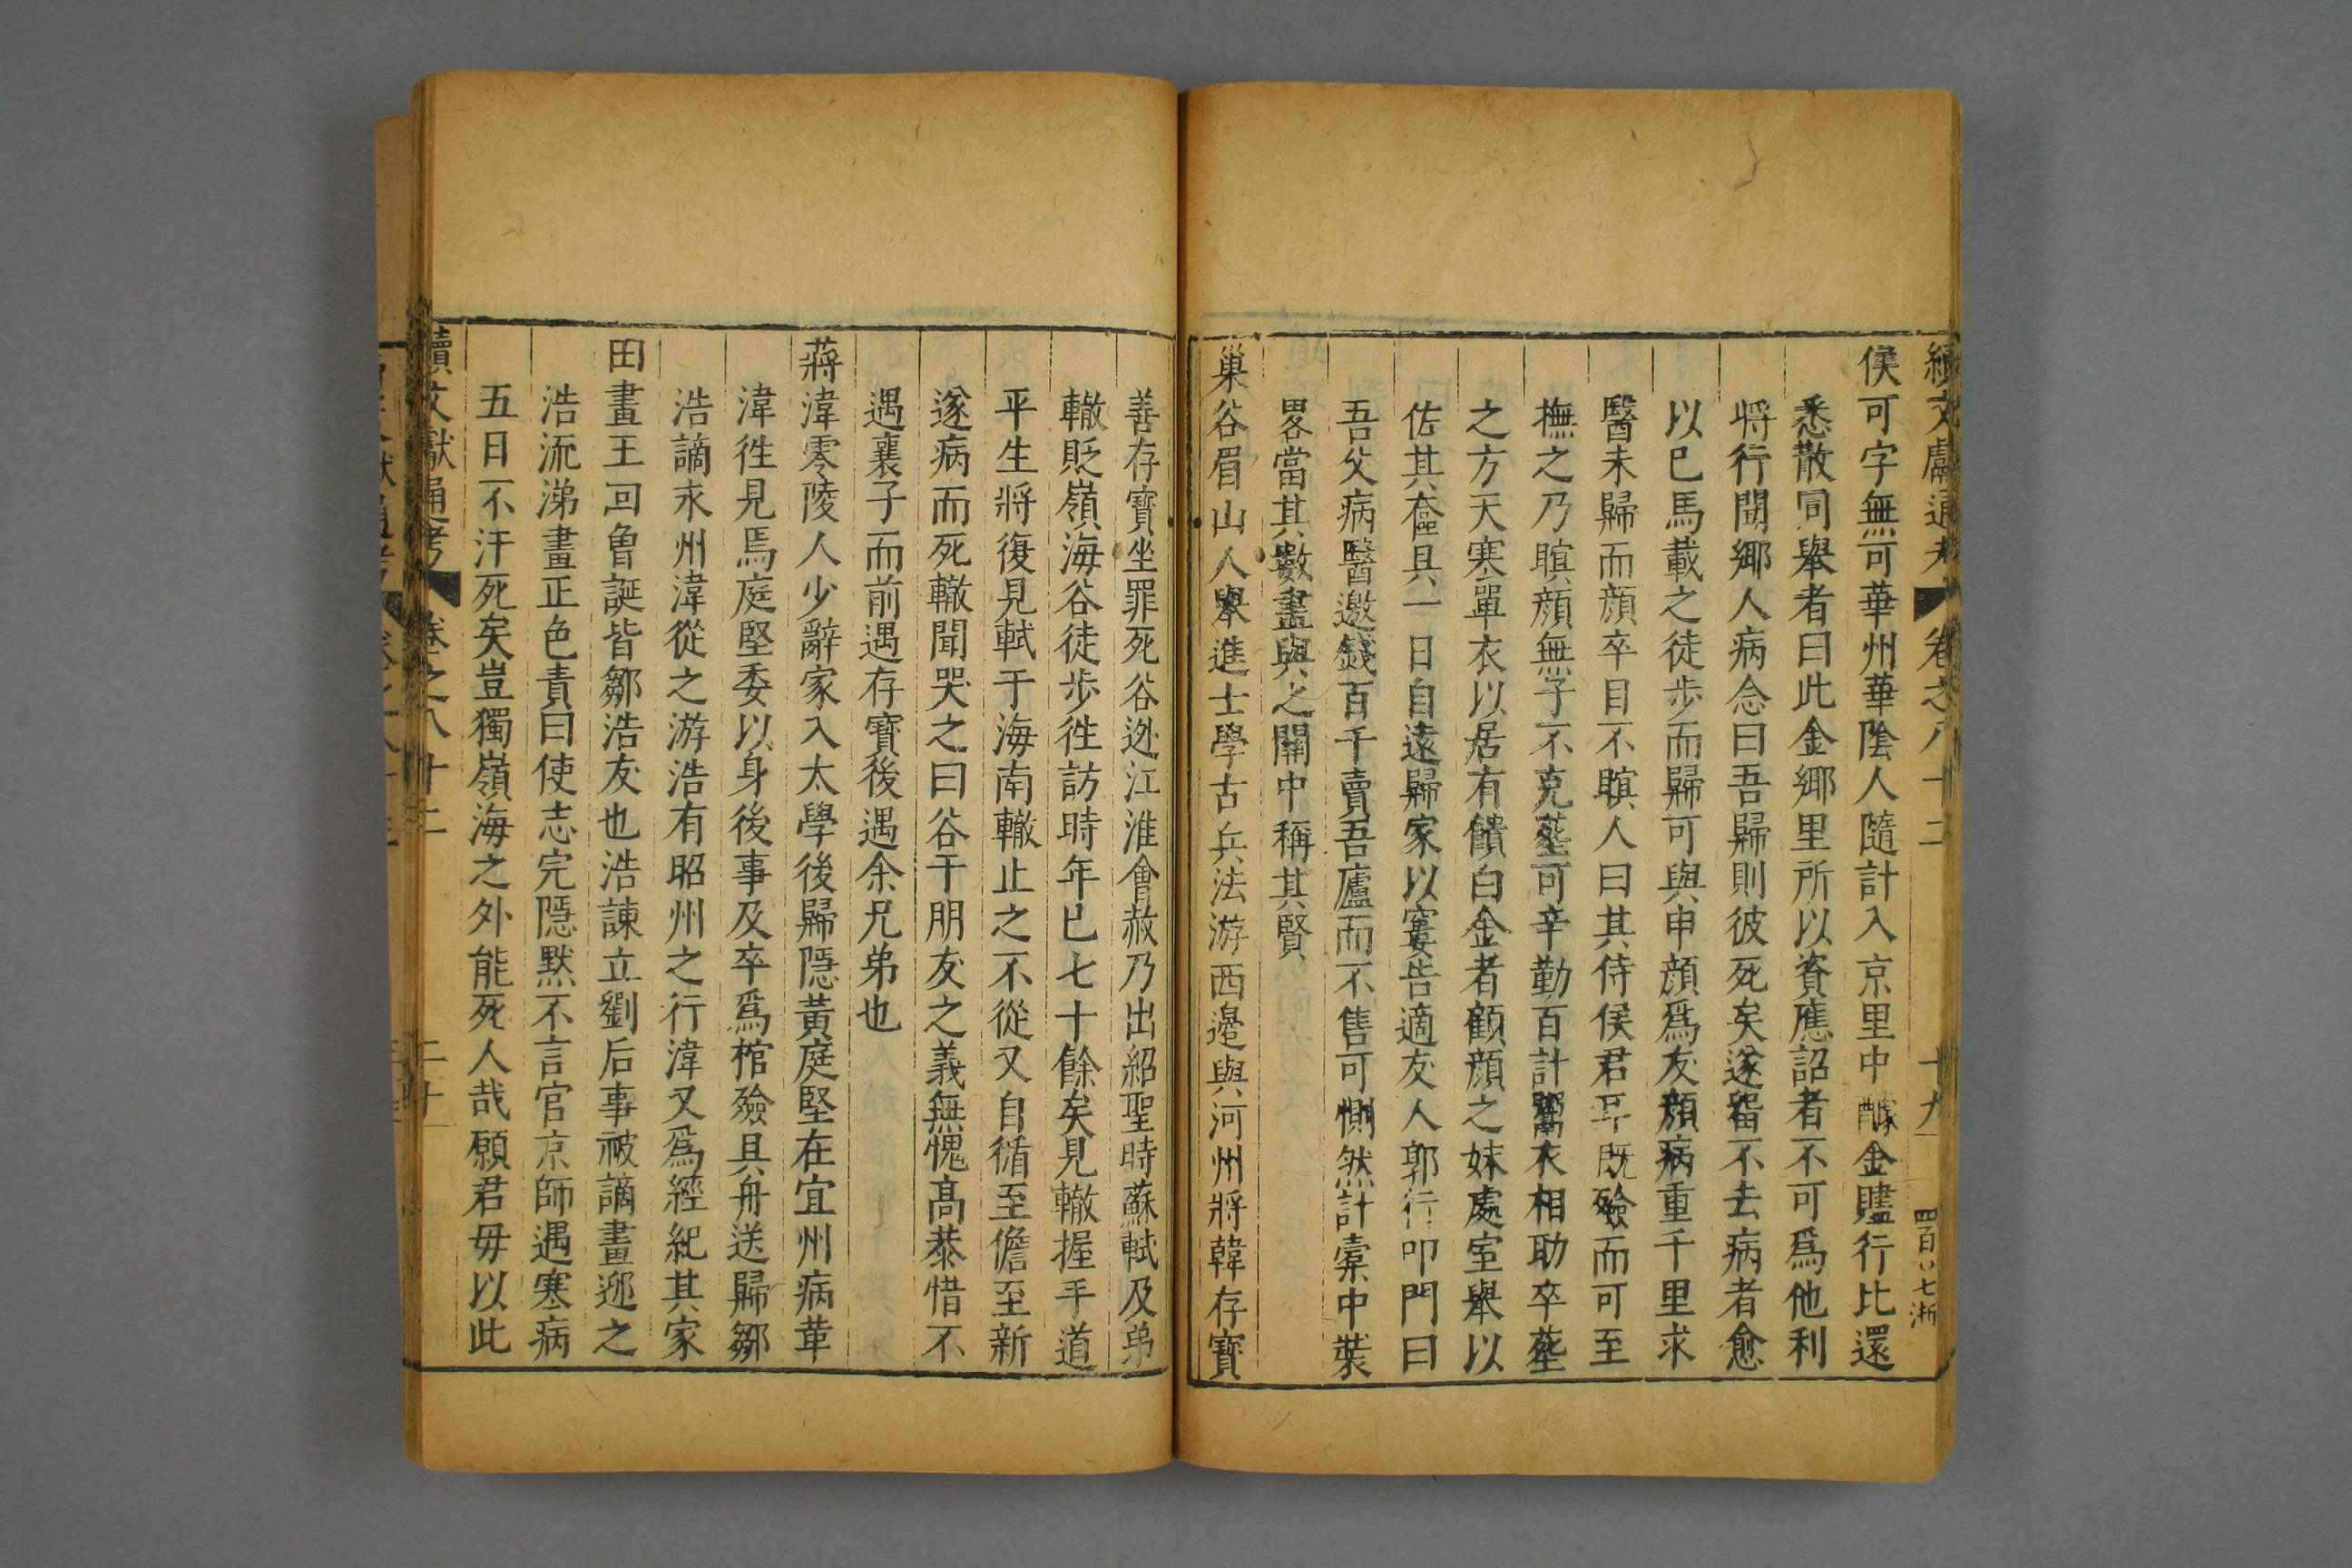 續文獻通考 卷之八十二 十九 四百〇七 浙
侯可字無可華州華陰人隨計入京里中醵金贐行比還
悉散同舉者曰此金鄉里所以資應詔者不可爲他利
將行聞鄉人病念曰吾歸則彼死矣遂留不去病者愈
以已馬載之徒步而歸可與申顔爲友顔病重千里求
醫未歸而顔卒目不瞑人曰其待侯君耳既殮而可至
撫之乃瞑顔無子不克塟可辛勤百計鬻衣相助卒塟
之方天寒單衣以居有饋白金者顧顔之妹處室舉以
佐其奩具一日自遠歸家以窶告適友人郭行叩門曰
吾父病醫邀錢百千賣吾廬而不售可惻然計橐中裝
畧當其數盡與之關中稱其賢
巢谷眉山人舉進士學古兵法游西邊與河州將韓存寶
善存寶坐罪死谷逃江淮會赦乃出紹聖時蘇軾及弟
轍貶嶺海谷徒步徃訪時年已七十餘矣見轍握手道
平生將復見軾于海南轍止之不從又自循至儋至新
遂病而死轍聞哭之曰谷于朋友之義無愧高恭惜不
遇襄子而前遇存寶後遇余兄弟也
蔣湋零陵人少辭家入太學後歸隱黃庭堅在宜州病革
湋徃見焉庭堅委以身後事及卒爲棺殮具舟送歸鄒
浩謫永州湋從之游浩有昭州之行湋又爲經紀其家
田畫王回魯誕皆鄒浩友也浩諫立劉后事被謫畫迎之
浩流涕畫正色責曰使志完隱默不言官京師遇寒病
五日不汗死矣豈獨嶺海之外能死人哉願君毋以此
續文獻通考 卷之八十二 二十